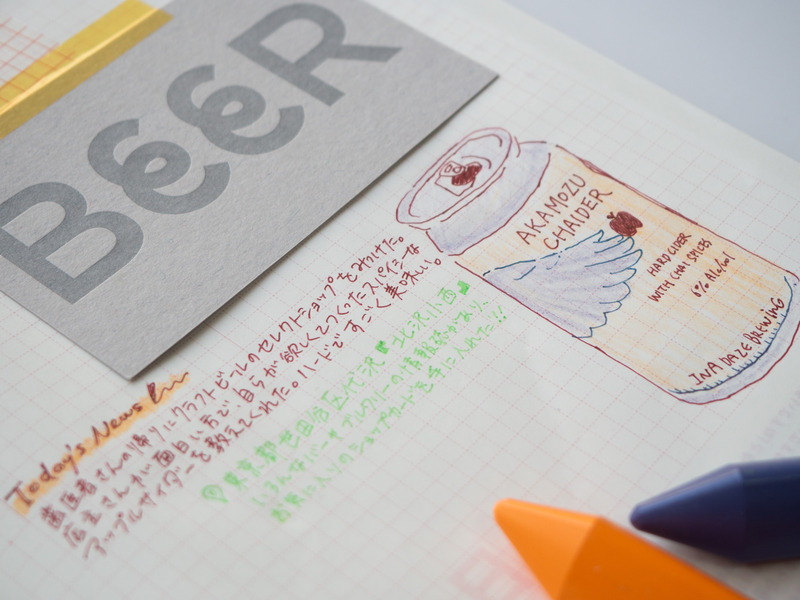 BEER
AKAMOZU
CHAIDER
HARD CIDER
WITH CHAI SPICES
6% Alc/Vol
INA DAZE BREWING
Today's News
歯医者さんの帰りにクラフトビールのセレクトショップをみつけた。
店主さんが面白い方で、自らが欲しくてつくったスパイシーな
アップルサイダーを教えてくれた。ハードですごく美味しい。
東京都世田谷区代沢 北沢小西
いろんなバーやブルワリーの情報誌があり、
お気に入りのショップカードを手に入れた!!